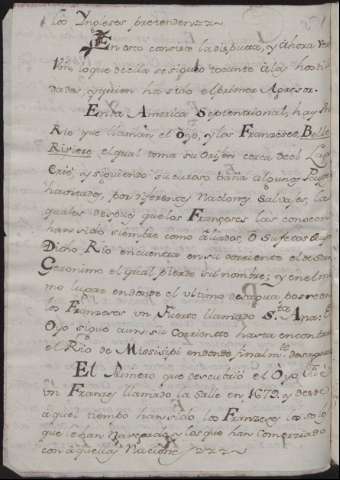 los Yngleses pretender
En esto consiste la disputa, y Ahora
lo que de ella se siguio tocante á las hosti
dades, y quien ha sido el primer Agresor.
En la America Septentrional, hay
Rio que llaman el Oyo, y los Franceses Belle
Riviere el qual toma su Origen cerca del Lago
Erié, y siguiendo su curso baña algunos
havitados, por diferentes Naciones Salvajes, las
quales despues que los Franceses las conocen
han sido siempre como aliados, ó Sujetas
Dicho Rio encuentra en su corriente el de San
Geronimo el qual pierde su nombre; y en el mis
mo lugar en donde el ultimo desagua poseen
los Franceses un Fuerte llamado Sta. Ana: El
Oyo sigue aun su Corriente hasta encontrar
el Rio de Missisipi en donde final mte. desagua
El Primero que descubrió el Oyo, fue
un Frances llamado la Salle en 1679. y desde
aquel tiempo han sido los Franzeses los solos
que le han Navegado, y los que han comerciado
con aquellas Naciones